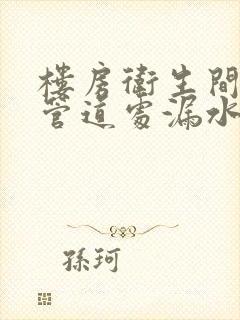 樓房衛生間
管道處漏水
孫珂